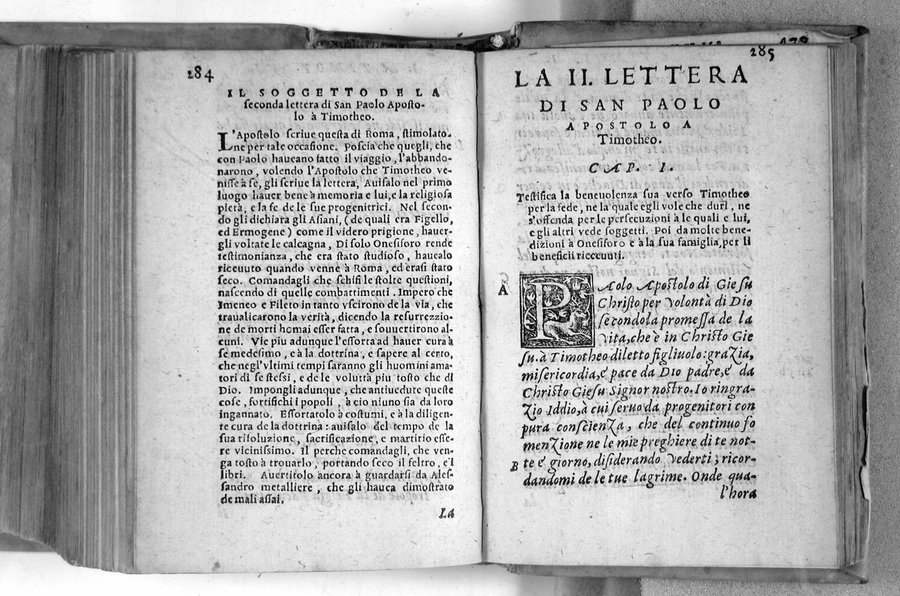 284
IL SOGGETTO DE LA
seconda lettera di San Paolo Aposto-
lo à Timotheo.
L'Apostolo scriue questa di Roma, stimolato-
ne per tale occasione. Poscia che quegli, che
con Paolo haueano fatto il viaggio, l'abbando-
narono, volendo l'Apostolo che Timotheo ve-
nisse à sè, gli scriue la lettera, Auisalo nel primo
luogo hauer bene à memoria e lui, e la religiosa
pietà, e la fe de le sue progenitrici. Nel secon-
do gli dichiara gli Asiani, (de quali era Figello,
ed Ermogene) come il videro prigione, hauer-
gli voltate le calcagna, Di solo Onesiforo rende
testimonianza, che era stato studioso, hauealo
riceuuto quando venne à Roma, ed erasi stato
seco. Comandagli che schifi le stolte questioni,
nascendo di quelle combattimenti. Impero che
Imeneo e Fileto in tanto vscirono de la via, che
traualicarono la verità, dicendo la resurrezzio-
ne de morti homai esser fatta, e souuertirono al-
cuni. Vie piu adunque l'essorta ad hauer cura à
se medesimo, e à la dottrina, e sapere al certo,
che negl'vltimi tempi saranno gli huomini ama-
tori di se stessi, e de le voluttà piu tosto che di
Dio. Impongli adunque, che antiuedute queste
cose, fortifichi i popoli, à ciò niuno sia da loro
ingannato. Essortatolo à costumi, e à la diligen-
te cura de la dottrina: auisalo del tempo de la
sua risoluzione, sacrificazione, e martirio esse-
re vicinissimo. Il perche comandagli, che ven-
ga tosto à trouarlo, portando seco il feltro, e i
libri. Auertitolo ancora à guardarsi da Ales-
sandro metalliere, che gli hauea dimostrato
de mali assai.
La
285
LA II. LETTERA
DI SAN PAOLO
APOSTOLO A
Timotheo.
CAP. I.
Testifica la beneuolenza sua verso Timotheo
per la fede, ne la quale egli vole che duri, ne
s'offenda per le persecuzioni à le quali e lui,
e gli altri vede soggetti. Poi da molte bene-
dizioni à Onesiforo e à la sua famiglia, per li
beneficii riceeuuti.
A
PAolo Apostolo di Giesu
Christo per Volontà di Dio
secondo la promessa de la
Vita, che è in Christo Gie
su. à Timotheo diletto figliuolo: grazia,
misericordia, e pace da Dio padre, e da
Christo Giesu Signor nostro. Io ringra-
zio Iddio, à cui seruo da progenitori con
pura conscienza, che del continuo fo
menzione ne le mie preghiere di te not-
B te e giorno, disiderando Vederti; ricor-
dandomi de le tue lagrime. Onde qua-
l'hora